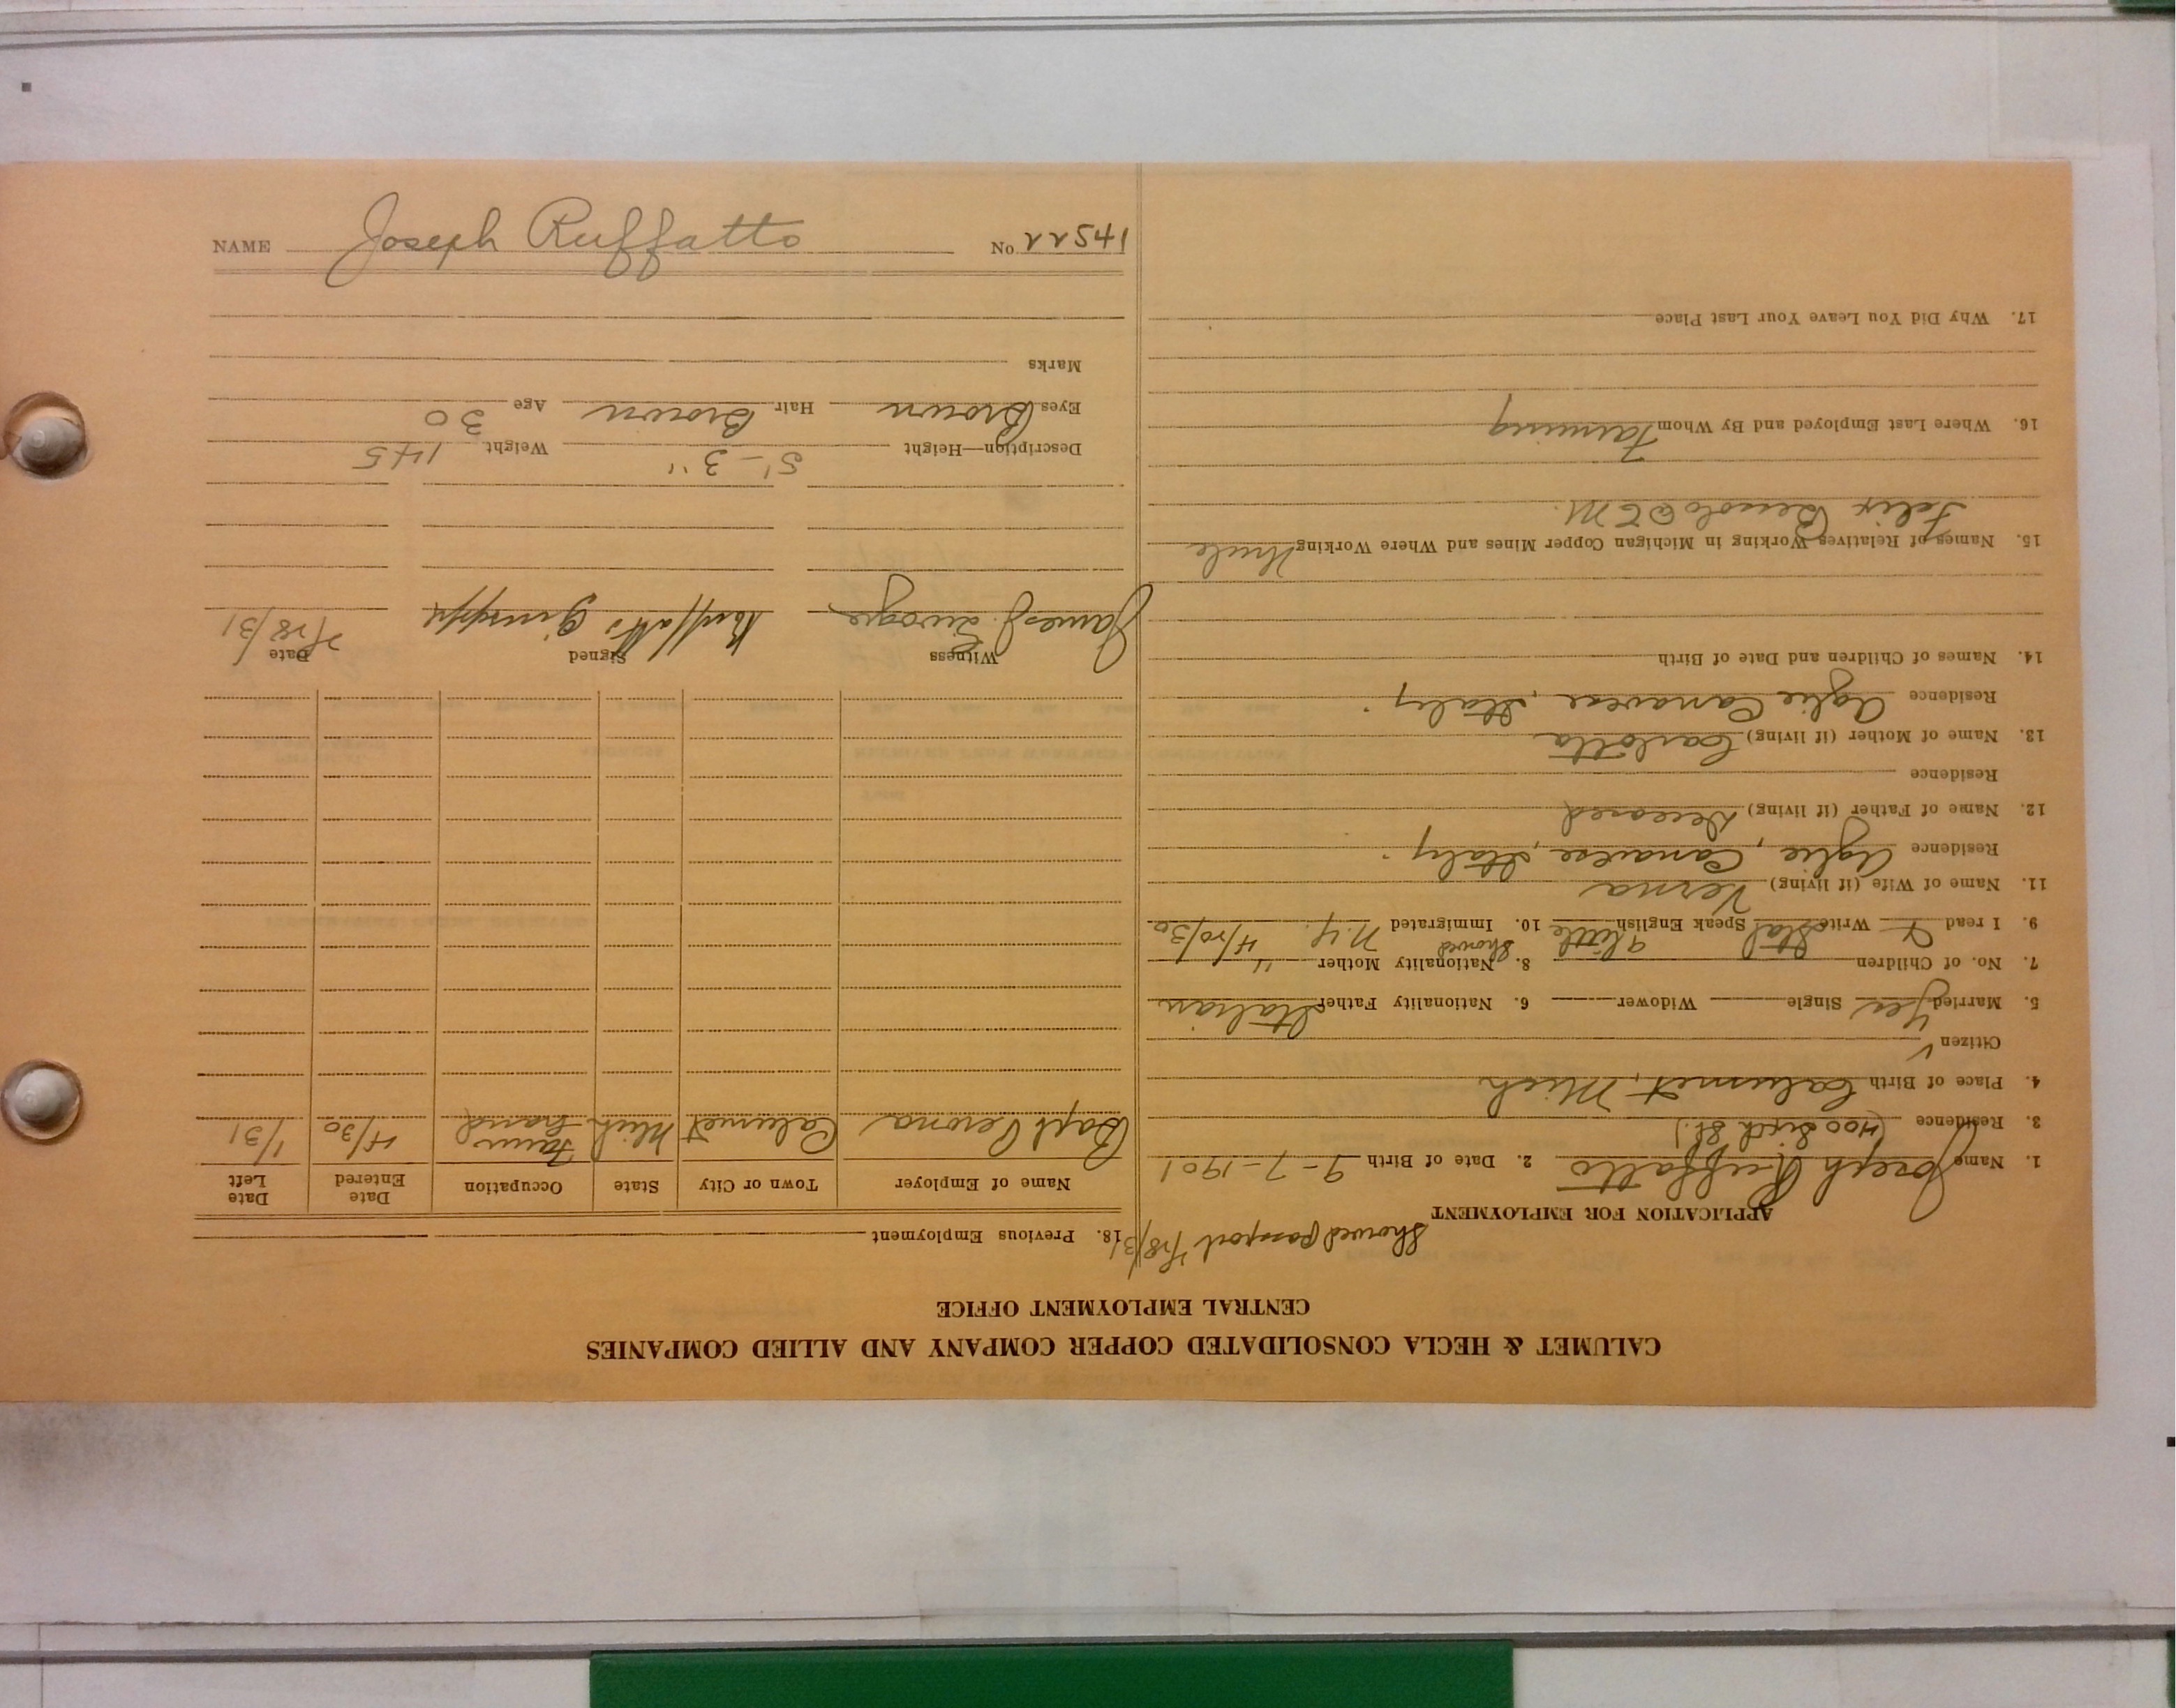 CALUMET & HECLA CONSOLIDATED COPPER COMPANY AND ALLIED COMPANIES
CENTRAL EMPLOYMENT OFFICE
Showed passport
APPLICATION FOR EMPLOYMENT
1. Name Joseph Ruffatto 2. Date of Birth 9-7-1901
3. Residence (400 Sixth St.)
4. Place of Birth Calumet, Mich
Citizen ✓
5. Married Yes Single Widower 6. Nationality Father Italian
7. No. of Children 8. Nationality Mother "
Showed
9. I read & Write Ital Speak English a little 10. Immigrated N.Y. 4/20/30
11. Name of Wife (if living) Verna
Residence Aglie, Canavese, Italy.
12. Name of Father (if living) Deceased
Residence
13. Name of Mother (if living) Carlotta
Residence Aglie Canavese, Italy.
14. Names of Children and Date of Birth
15. Names of Relatives Working in Michigan Copper Mines and Where Working Uncle
Felix
16. Where Last Employed and By Whom Farming
17. Why Did You Leave Your Last Place
18. Previous Employment
Name of Employer Town or City State Occupation Date Entered Date Left
Bapt Perona Calumet Mich Farm hand 4/30 1/31
Witness Signed Date
James J. Ruffatto Giuseppe 7/28/31
Description—Height 5'-3" Weight 145
Eyes Brown Hair Brown Age 30
Marks
NAME Joseph Ruffatto No 22541